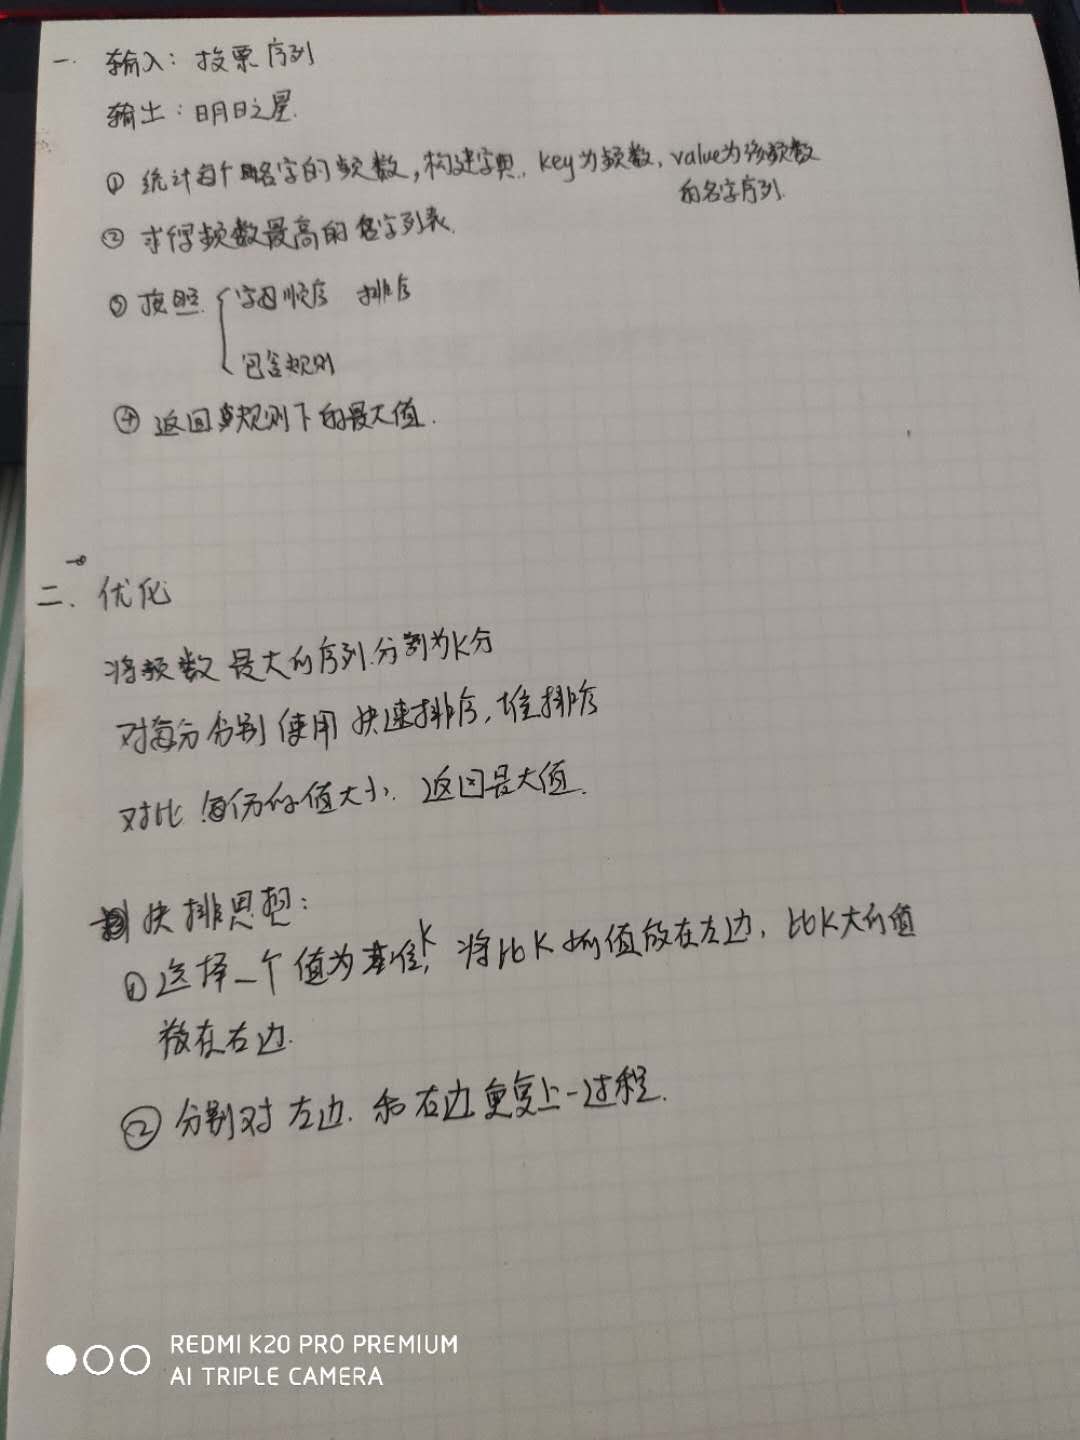 一. 输入：投票序列
输出：明日之星.
① 统计每个名字的频数，构建字典. key为频数，value为该频数
的名字序列.
② 求得频数最高的名字列表.
③ 按照 字母顺序 排序
包含规则
④ 返回规则下的最大值.
二. 优化
将频数最大的序列分割为K分
对每分分别使用快速排序，堆排序
对比每份的值大小. 返回最大值.
快排思想：
① 选择一个值为基准K，将比K小的值放在左边，比K大的值
放在右边.
② 分别对左边. 和右边重复上一过程.
REDMI K20 PRO PREMIUM
AI TRIPLE CAMERA